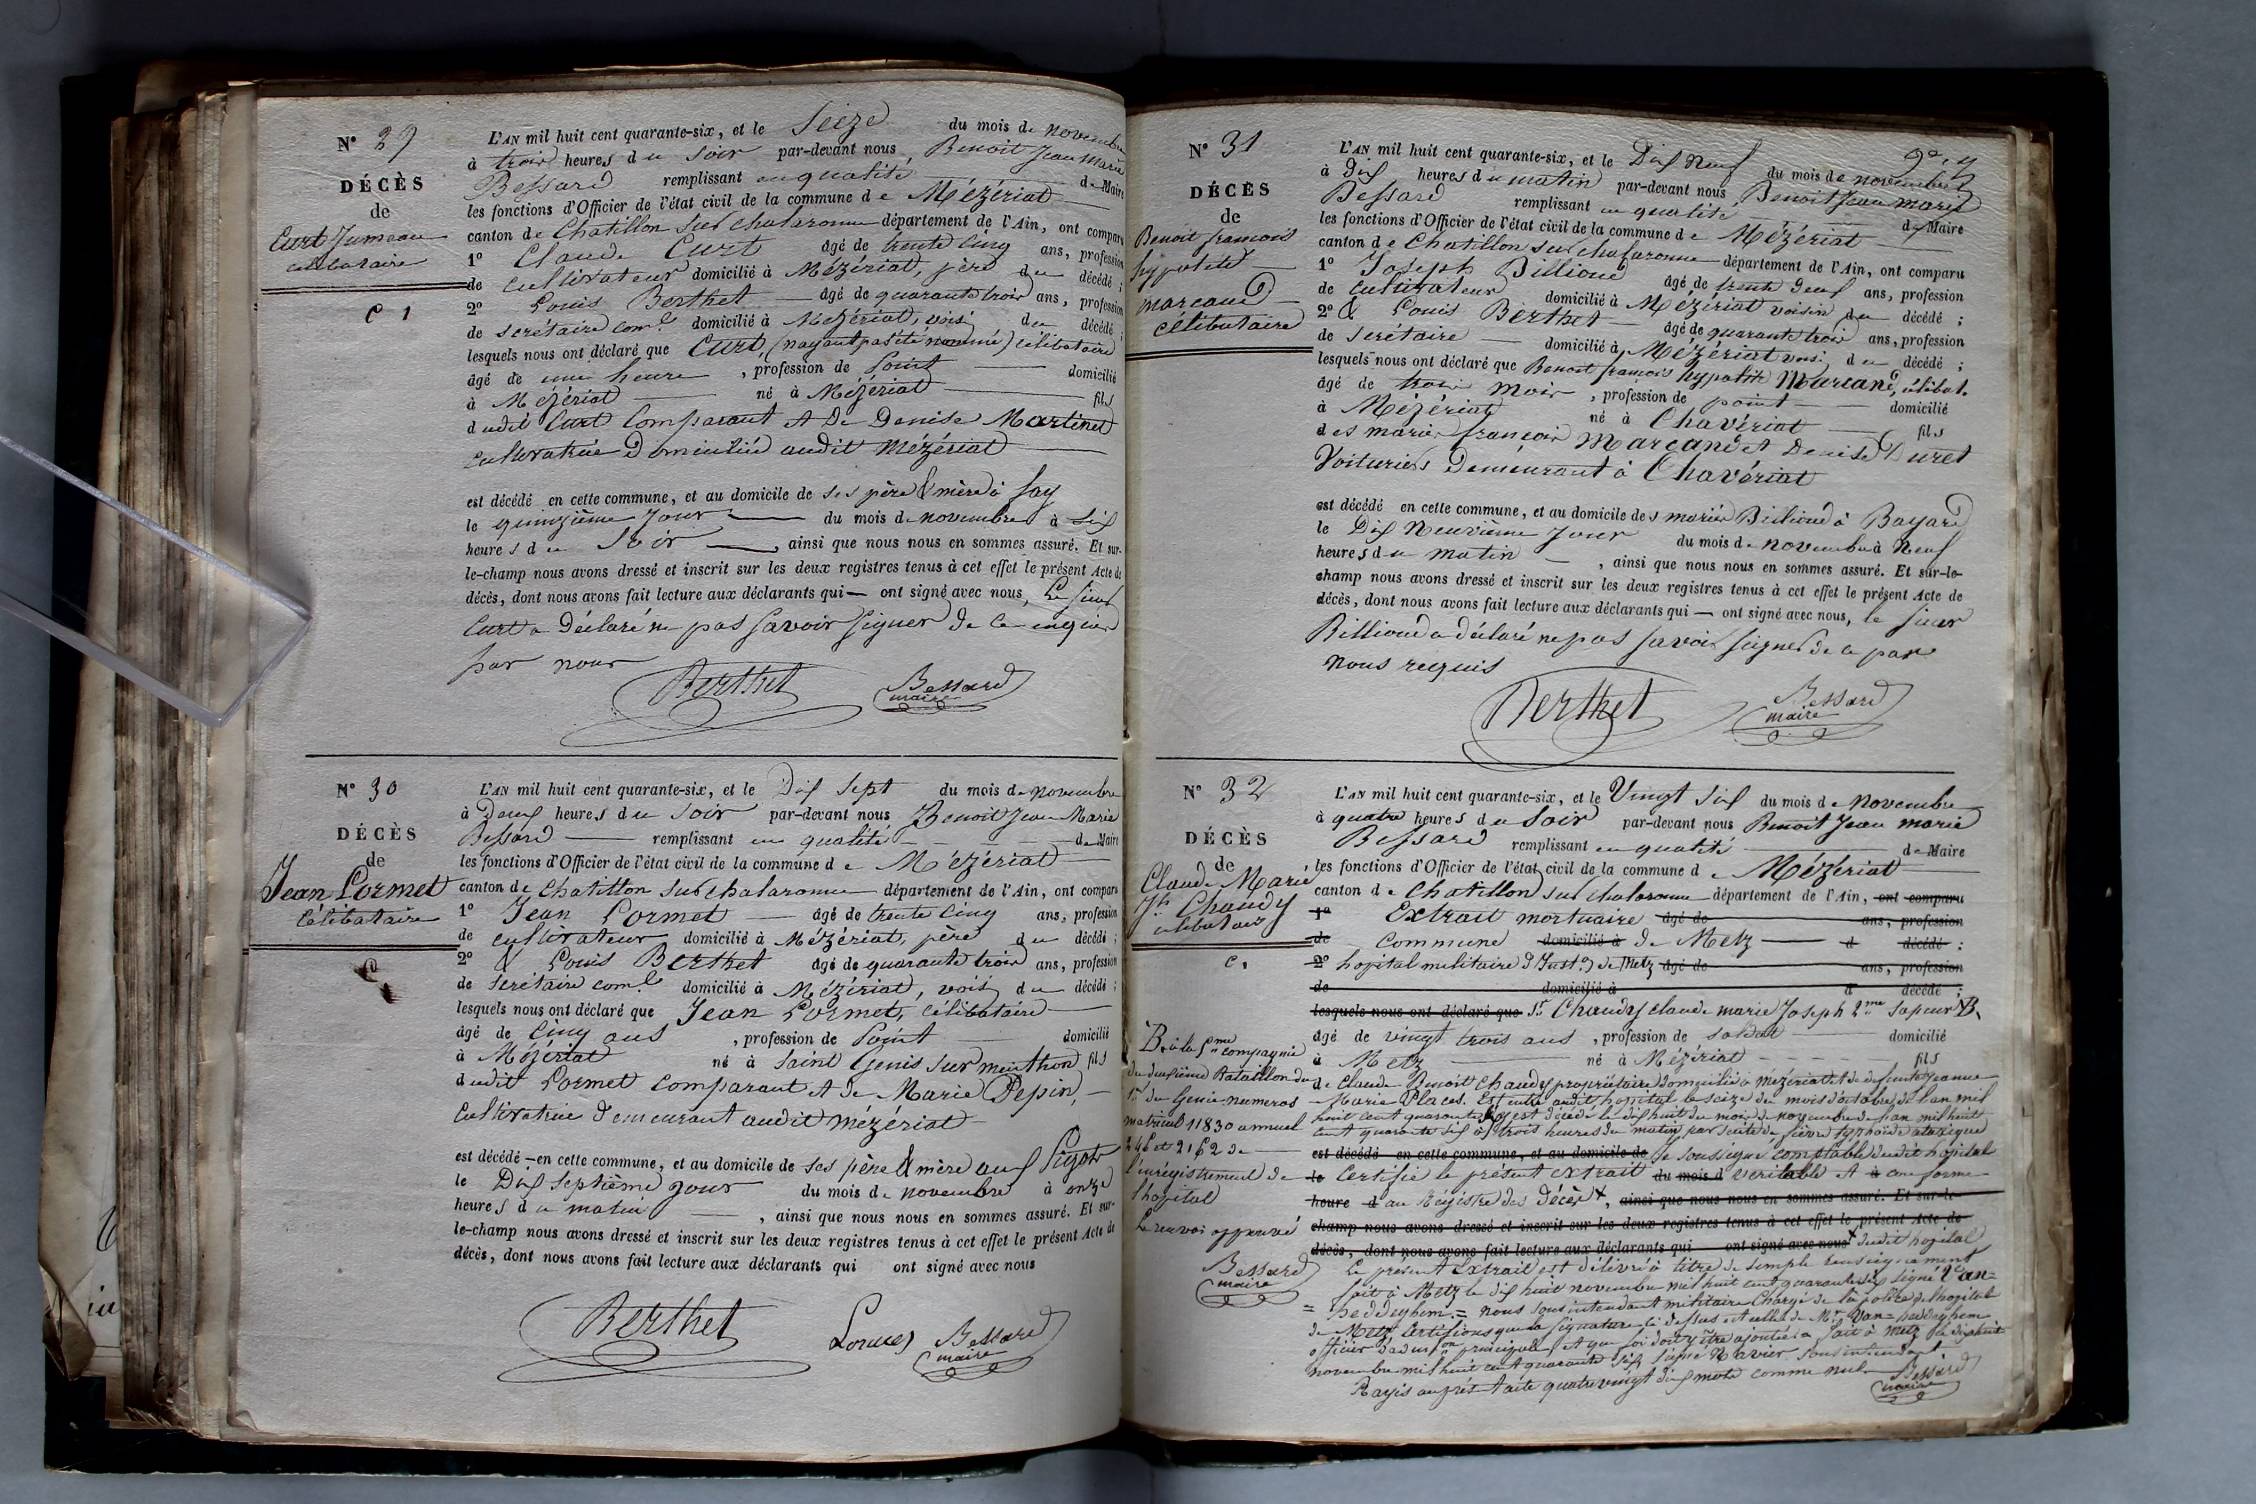 N° 29
DÉCÈS
de
Curt Jumeau
célibataire
C 1
L'AN mil huit cent quarante-six, et le Seize du mois de novembre
à trois heures du soir par-devant nous Benoit Jean Marie
Bessard remplissant en qualité de Maire
les fonctions d'Officier de l'état civil de la commune de Mézériat
canton de Chatillon sur chalaronne département de l'Ain, ont comparu
1° Claude Curt âgé de trente cinq ans, profession
de cultivateur domicilié à Mézériat, père du décédé ;
2° Louis Berthet âgé de quarante trois ans, profession
de secrétaire com.l domicilié à Mézériat, voisi du décédé ;
lesquels nous ont déclaré que Curt, (nayant pas été nommé) célibataire
âgé de une heure , profession de point domicilié
à Mézériat né à Mézériat fils
dudit Curt Comparant et De Denise Martinet
cultivatrice Domicilié audit Mézériat
est décédé en cette commune, et au domicile de ses père & mère à fay
le quinzième jour du mois de novembre à six
heures du Soir , ainsi que nous nous en sommes assuré. Et sur-
le-champ nous avons dressé et inscrit sur les deux registres tenus à cet effet le présent Acte de
décès, dont nous avons fait lecture aux déclarants qui — ont signé avec nous, Le sieur
Curt a déclaré ne pas savoir signer de ce enquis
par nous
Berthet Bessard
maire
N° 30
DÉCÈS
de
Jean Lormet
célibataire
C
L'AN mil huit cent quarante-six, et le Dix Sept du mois de novembre
à Deux heures du soir par-devant nous Benoit Jean Marie
Bessard remplissant en qualité de Maire
les fonctions d'Officier de l'état civil de la commune de Mézériat
canton de Chatillon sur chalaronne département de l'Ain, ont comparu
1° Jean Lormet âgé de trente cinq ans, profession
de cultivateur domicilié à Mézériat, père du décédé ;
2° & Louis Berthet âgé de quarante trois ans, profession
de secrétaire com.l domicilié à Mézériat, voisi du décédé ;
lesquels nous ont déclaré que Jean Lormet, célibataire
âgé de Cinq ans , profession de Point domicilié
à Mézériat né à Saint Genis sur menthon fils
dudit Lormet comparant et de Marie Pepin,
Cultivatrice Demeurant audit Mézériat
est décédé — en cette commune, et au domicile de ses père & mère aux
le Dix septième jour du mois de novembre à onze
heures du matin , ainsi que nous nous en sommes assuré. Et sur-
le-champ nous avons dressé et inscrit sur les deux registres tenus à cet effet le présent Acte de
décès, dont nous avons fait lecture aux déclarants qui ont signé avec nous
Berthet Bessard
maire
N° 31
DÉCÈS
de
Benoit francois
hypolite
marcand
célibataire
L'AN mil huit cent quarante-six, et le Dix Neuf du mois de novembre
à Dix heures du matin par-devant nous Benoit Jean marie
Bessard remplissant en qualité de Maire
les fonctions d'Officier de l'état civil de la commune de Mézériat
canton de Chatillon sur chalaronne département de l'Ain, ont comparu
1° Joseph Billioud âgé de trente Deux ans, profession
de cultivateur domicilié à Mézériat voisin du décédé ;
2° & Louis Berthet âgé de quarante trois ans, profession
de secrétaire domicilié à Mézériat voisi du décédé ;
lesquels nous ont déclaré que Benoit francois hypolite Marcand, célibat.
âgé de trois mois , profession de point domicilié
à Mézériat né à Chavériat fils
des mariés françois Marcand et Denise Curet
Voituriers Demeurant à Chavériat
est décédé en cette commune, et au domicile des mariés Billioud à Bayard
le Dix Neuvième jour du mois de novembre à Neuf
heures du matin , ainsi que nous nous en sommes assuré. Et sur-le-
champ nous avons dressé et inscrit sur les deux registres tenus à cet effet le présent Acte de
décès, dont nous avons fait lecture aux déclarants qui — ont signé avec nous, le sieur
Billioud a déclaré ne pas savoir signer de ce par
nous requis
Berthet Bessard
maire
N° 32
DÉCÈS
de
Claude Marie
Jh Chaudy
célibataire
C 1
L'AN mil huit cent quarante-six, et le Vingt six du mois de Novembre
à quatre heures du Soir par-devant nous Benoit Jean marie
Bessard remplissant en qualité de Maire
les fonctions d'Officier de l'état civil de la commune de Mézériat
canton de Chatillon sur chalaronne département de l'Ain, ont comparu
1° Extrait mortuaire âgé de ans, profession
de commune domicilié à de Metz d décédé ;
2° hopital militaire d'Inst.on de Metz âgé de ans, profession
de domicilié à d décédé ;
lesquels nous ont déclaré que Sr. Chaudy claude marie Joseph 2me Sapeur B.
âgé de vingt trois ans , profession de soldat domicilié
à Metz né à Mézériat fils
de claude Benoit Chaudy propriétaire domicilié à mézériat et de defunte Jeanne
Marie Places. Est entré audit hopital le seize du mois d'octobre de l'an mil
huit cent quarante six y est décédé le dix huit du mois de novembre de l'an mil huit
cent quarante six à trois heures du matin par suite de fièvre typhoïde ataxique
est décédé en cette commune, et au domicile de Je soussigné comptable dudit hopital
le Certifie le présent extrait du mois d veritable et à conforme
heure d au Régistre des Décès+, ainsi que nous nous en sommes assuré. Et sur-le-
champ nous avons dressé et inscrit sur les deux registres tenus à cet effet le présent Acte de
décès, dont nous avons fait lecture aux déclarants qui ont signé avec nous + dudit hopital
Le présent Extrait est délivré à titre de simple renseignement
fait à Metz le dix huit novembre mil huit cent quarante six signé Van=
=heddeghem = nous sous intendant militaire Chargé de la police de l'hopital
de Metz Certifions que la signature ci dessus est celle de Mr Van=heddeghem
officier d'adm.on principal et que foi doit y être ajoutée. fait à Metz le dix huit
novembre mil huit cent quarante six signé Navier sous intendant
Rayés au présent acte quatre vingt dix mots comme nul Bessard
maire
B. à la 5me compagnie
du deuxième Bataillon du
1er du Génie numeros
matricul 11830 annuel
246 et 2162 de
l'enregistrement de
l'hopital
Le renvoi approuvé
Bessard
maire